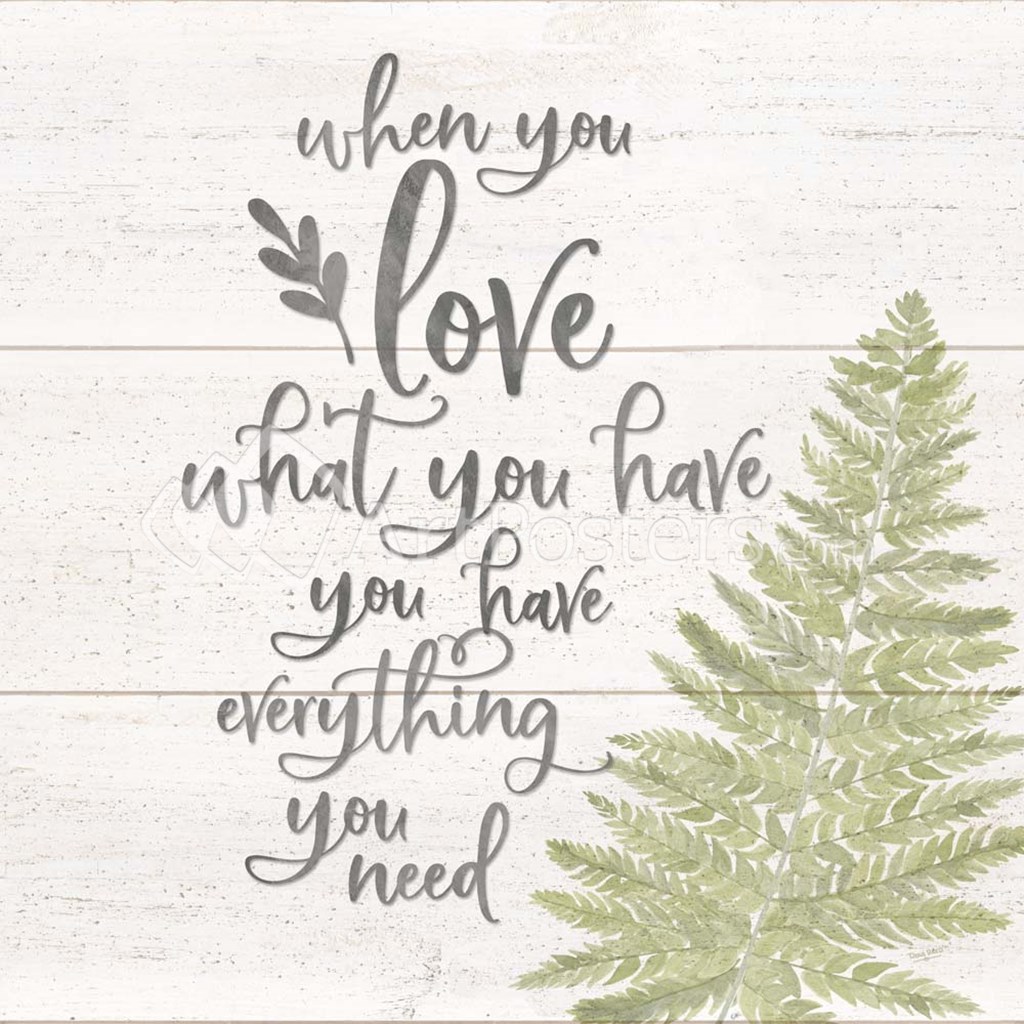 when you
love
what you have
ArtPosters
you have
everything
you
need